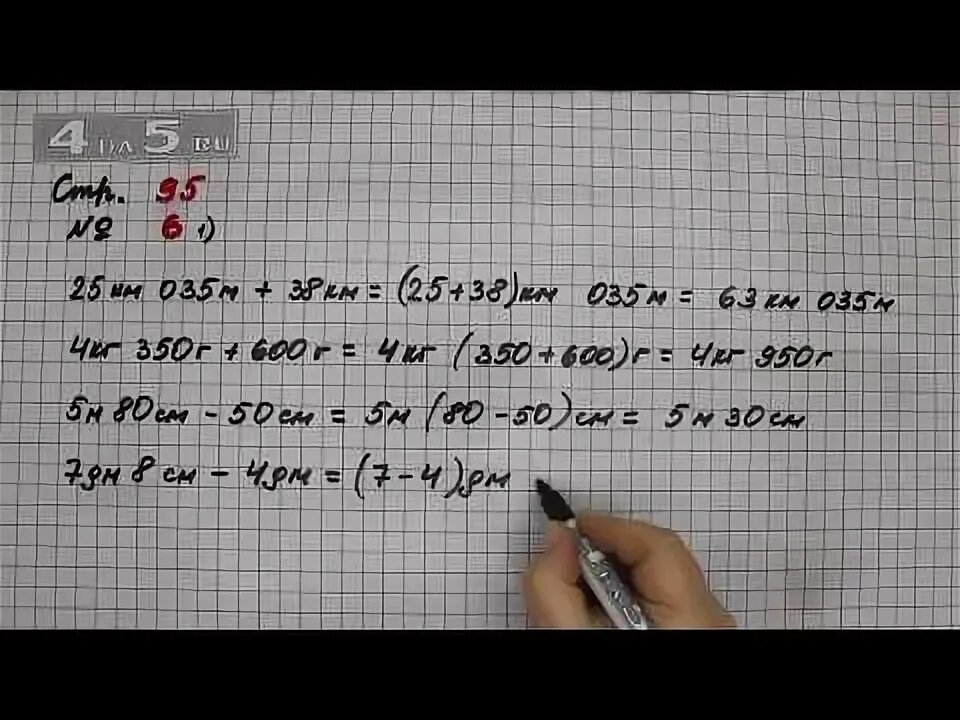 4 на 5 RU
Стр. 95
№ 6 1)
25 км 035 м + 38 км = (25 + 38) км 035 м = 63 км 035 м
4 кг 350 г + 600 г = 4 кг (350 + 600) г = 4 кг 950 г
5 м 80 см - 50 см = 5 м (80 - 50) см = 5 м 30 см
7 дм 8 см - 4 дм = (7 - 4) дм